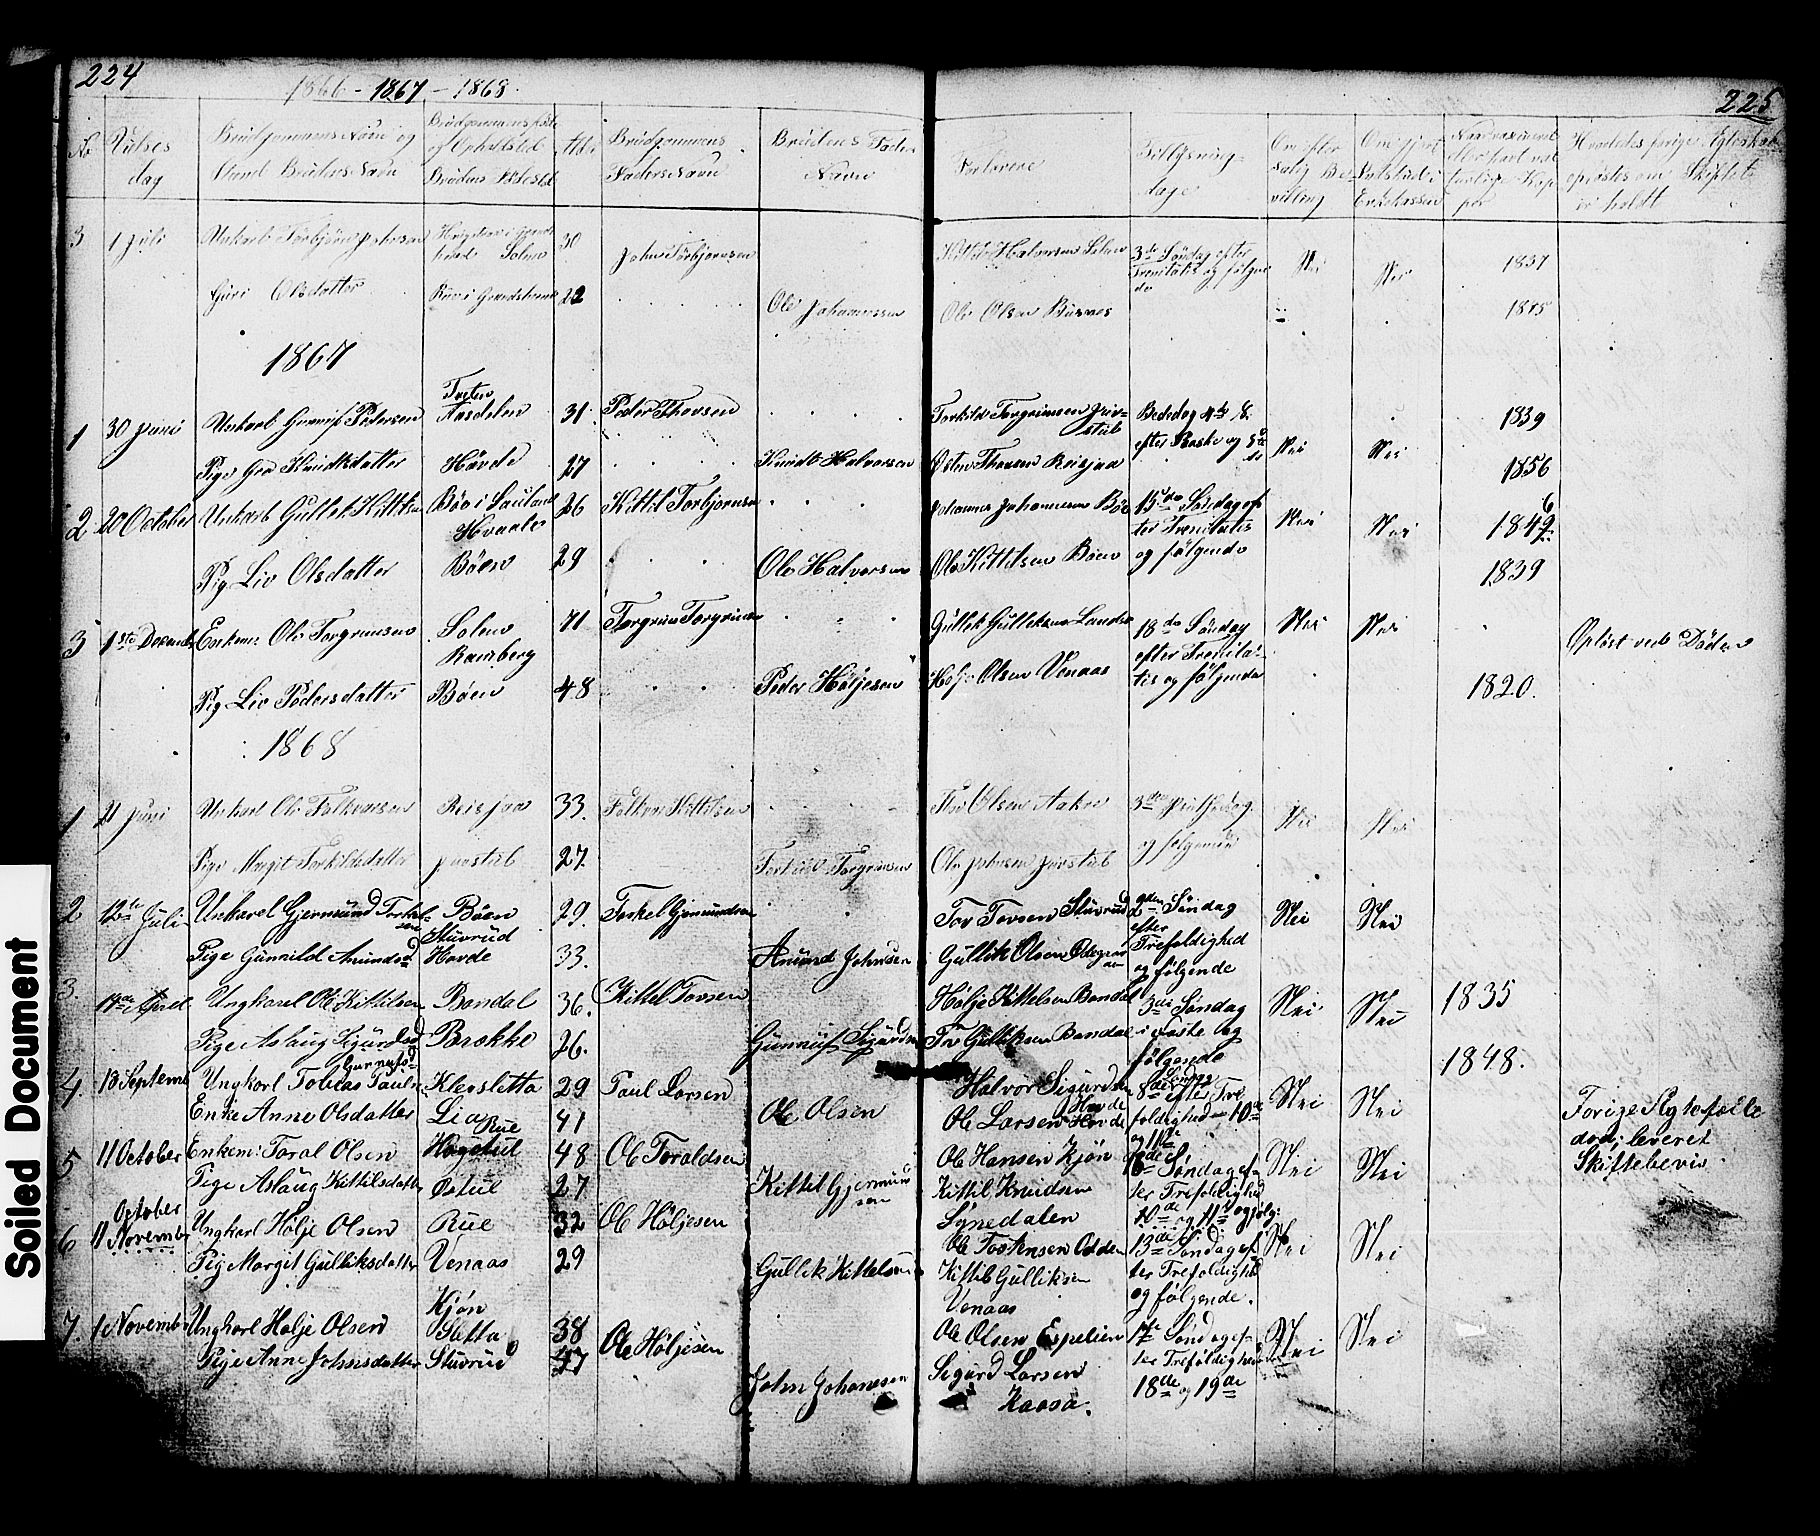 224
1866 - 1867 - 1868.
225
No Vielses dag Brudgommens Navn og Stand Brudens Navn Brudgommens Føde og Opholdsted Brudens Fødested Alder Brudgommens Faders Navn Brudens Faders Navn Forlovere Tillysnings dage Om efter Bevilling Om Enkekassen Skiftet er holdt
3 1 Juli Unkarl Torbjörn Johnsen Solem 30 John Torbjørnsen Halvorsen 3de Söndag efter Trenitatis og følgende Nei Nei 1837
Guri Olsdatter 22 Ole Johannessen Ole Olsen Busnes 1845
1867
1 30 Juni Unkarl Gunnuf Pedersen Treten Aasdelen 31 Peder Thovsen Torkild Torgrimsen Juvstub Bededag 4de S. efter Paske og 5te Nei Nei 1839
Pige Gro Knudtsdatter Hövde 27 Knudt Halvorsen Østen Thovsen Reisjaa 1856
2 20 October Unkarl Gullek Kittilsen Böe i Sauland Hvaale 26 Kittil Torbjornsen Johannes Johannesen Böe 15de Söndag efter Trenitatis og følgende Nei Nei 1846
Pig Liv Olsdatter Böen 29 Ole Halvorsen Ole Kittilsen Böen 1839
3 1ste December Enkem: Ole Torgrimsen Solem Ramberg 71 Torgrim Torgrimsen Gullek Gulleksen Lands 18de Söndag efter Trenitatis og følgende Nei Nei Opløst ved Döden
Pig Liv Pedersdatter Böen 48 Peder Höljesen Holje Olsen Venaas 1820.
1868
1 21 Juni Unkarl Ole Folkvarsen Reisjaa 33. Folkvar Kittilsen Tov Olsen Aakre 3die Pintsedag og følgende Nei Nei
Pige Margit Torkildsdatter Juvstub 27. Torkild Torgrimsen Ole Johnsen Juvstub
2 12te Juli Unkarel Gjermund Torkelsen Böen Stuvrud 29. Torkel Gjermundsen Tov Tovsen Stuvrud 2den Söndag efter Trefoldighed og følgende Nei Nei
Pige Gunnild Anundsd Hovde 33. Anund Johnsen Gullik Olsen Ødegaarden
3. 14de April Ungkarel Ole Kittilsen Bondal 36. Kittel Tovsen Holje Kittelsen Bondal 3die Söndag i Faste og følgende Nei Nei 1835
Pige Aslaug Sigurdsd Gunnufsd Brokke 26. Gunnuf Sigurdsen Tov Gulliksen Bondal 1848.
4. 13 Septembr Ungkarl Tobias Paulsen Klevsletta 29 Paul Larsen Halvor Sigurdsen Hovde 8de Söndag efter Trefoldighed 10de og 11te Nei Nei Forige Ægtefælle død; leveret Skiftebevis.
Enke Anne Olsdatter Lia 41 Ole Olsen Ole Larsen Hovde
5 11 October Enkem: Toral Olsen Rue Høgstul 48 Ole Toraldsen Ole Hansen Kjøn Söndag efter Trefoldighed 10de og 11te og følg: Nei Nei
Pige Aslaug Kittilsdatter Østul 27 Kittil Gjermundsen Kittil Knudsen Synedalen
6 11 October November Ungkarl Holje Olsen Rue 32 Ole Höljesen Ole Torstensen Odden 13de Söndag efter Trefoldighed og følgende. Nei Nei
Pig Margit Gulliksdatter Venaas 29 Gullik Kittelsen Kittil Gulliksen Venaas
7. 1 November Ungkarl Holje Olsen Kjøn Sletta 38 Ole Höljesen Ole Olsen Espelien 17de Söndag efter Trefoldighed 18de og 19de Nei Nei
Pige Anne Johnsdatter Stuvrud 47 John Johanesen Sigurd Larsen Kaasa.
Soiled Document